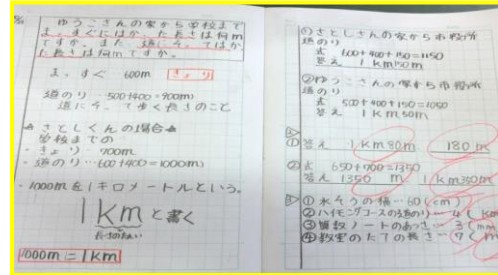 ゆうこさんの家から学校まで
ま、すぐにはか、た長さは何m
ですか。また、道にそ、てはか
た長さは何mですか。
ま、すぐ 600m きょり
道のり…500+400=900(m)
道にそ、て歩く長さのこと
さとしくんの場合
学校までの
・きょり…900m
・道のり…600+400=1000(m)
・1000mを1キロメートルという。
1kmと書く
1000m=1km
①さとしさんの家から市役所
道のり
式 600+400+150=1150
答え 1km150m
②ゆうこさんの家から市役所
道のり
式 500+400+150=1050
答え 1km50m
① 答え 1km80m 180m
② 式 650+700=1350
答え 1350m 1km350m
①水そうの横…60(cm)
②ハイキングコースの道のり…4(km
③算数ノートのあつさ…3(mm)
④教室のたての長さ…9(m